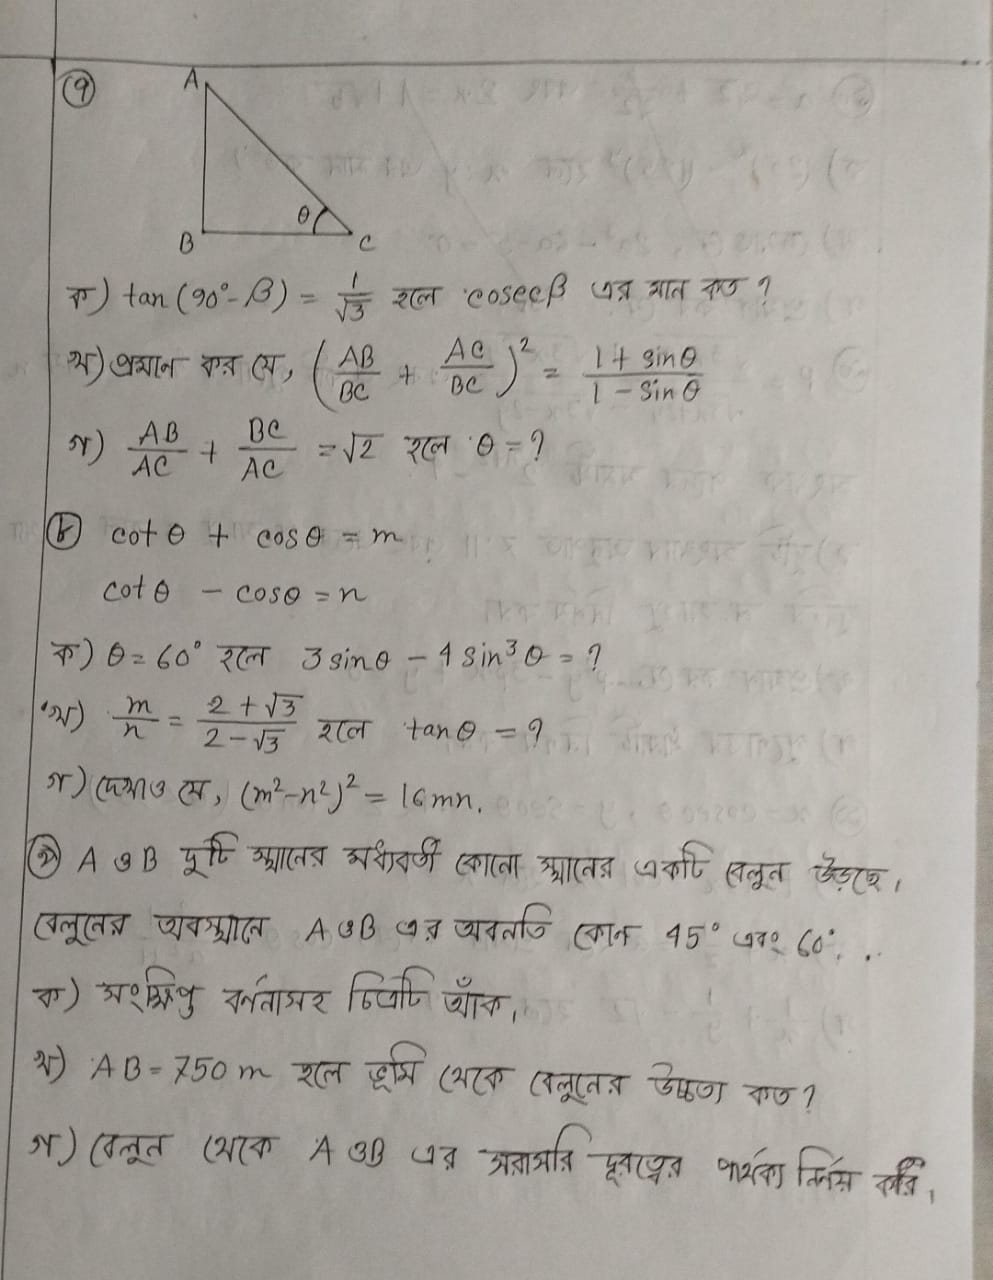 ৭
A
B
C
θ
ক) tan (90° - β) = 1/√3 হলে cosecβ এর মান কত ?
খ) প্রমান কর যে, (AB/BC + AC/BC)² = (1 + sinθ)/(1 - sinθ)
গ) AB/AC + BC/AC = √2 হলে θ = ?
৮ cot θ + cosθ = m
cotθ - cosθ = n
ক) θ = 60° হলে 3 sinθ - 4 sin³θ = ?
খ) m/n = (2 + √3)/(2 - √3) হলে tanθ = ?
গ) দেখাও যে, (m² - n²)² = 16mn.
৯ A ও B দুটি স্থানের মধ্যবর্তী কোনো স্থানের একটি বেলুন উড়ছে।
বেলুনের অবস্থানে A ও B এর অবনতি কোন 45° এবং 60°.
ক) সংক্ষিপ্ত বর্ননাসহ চিত্রটি আঁক।
খ) AB = 750 m হলে ভূমি থেকে বেলুনের উচ্চতা কত ?
গ) বেলুন থেকে A ও B এর সরাসরি দূরত্বের পার্থক্য নির্নয়